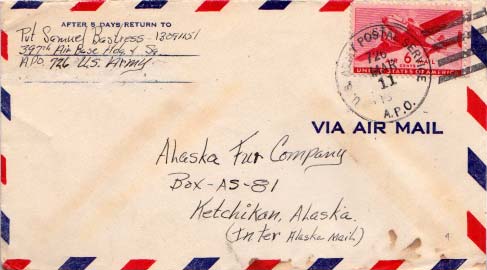 AFTER 5 DAYS RETURN TO
Pvt Samuel Bastress - 13091151
397th Air Base Hdq. & Sq.
A.P.O. 726 U.S. Army
U.S. ARMY POSTAL SERVICE
726
MAR
11
A.P.O.
6
CENTS
UNITED STATES OF AMERICA
VIA AIR MAIL
Alaska Fur Company
Box-AS-81
Ketchikan, Alaska.
(Inter Alaska Mail)